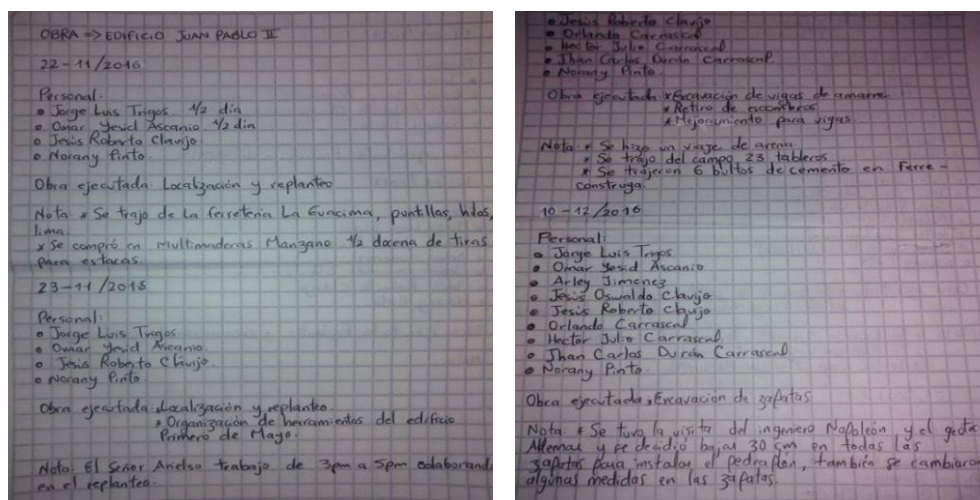 OBRA => EDIFICIO JUAN PABLO II
22-11/2016
Personal:
• Jorge Luis Trigos 1/2 dia
• Omar Yesid Ascanio 1/2 dia
• Jesús Roberto Clavijo
• Norany Pinto.
Obra ejecutada: Localización y replanteo
Nota * Se trajo de la ferreteria La Guacima, puntillas, hilos,
lima.
* Se compró en Multimaderas Manzano 1/2 docena de tiras
para estacas.
23-11/2016
Personal:
• Jorge Luis Trigos
• Omar Yesid Ascanio
• Jesús Roberto Clavijo.
• Norany Pinto
Obra ejecutada * Localización y replanteo.
* Organización de herramientos del edificio
Primero de Mayo.
Nota: El Señor trabajo de 3pm a 5pm colaborando
en el replanteo.
• Jesús Roberto Clavijo
• Orlando Carrascal
• Hector Julio Carrascal
• Jhan Carlos Durán Carrascal
• Norany Pinto.
Obra ejecutada * Excavación de vigas de amarre
* Retiro de escombros
* Mejoramiento para vigas
Nota: * Se hizo un viaje de arena.
* Se trajo del campo 23 tableros
* Se trajeron 6 bultos de cemento en Ferre-
construya.
10-12/2016
Personal:
• Jorge Luis Trigos
• Omar Yesid Ascanio
• Arley Jimenez
• Jesús Oswaldo Clavijo
• Jesús Roberto Clavijo
• Orlando Carrascal
• Hector Julio Carrascal
• Jhan Carlos Durán Carrascal
• Norany Pinto.
Obra ejecutada * Excavación de zapatas
Nota: * Se tuvo la visita del ingeniero Napoleón y el
y se decidió bajar 30 cm en todas las
zapatas para instalar el pedraplén, también se cambiaron
algunas medidas en las zapatas.